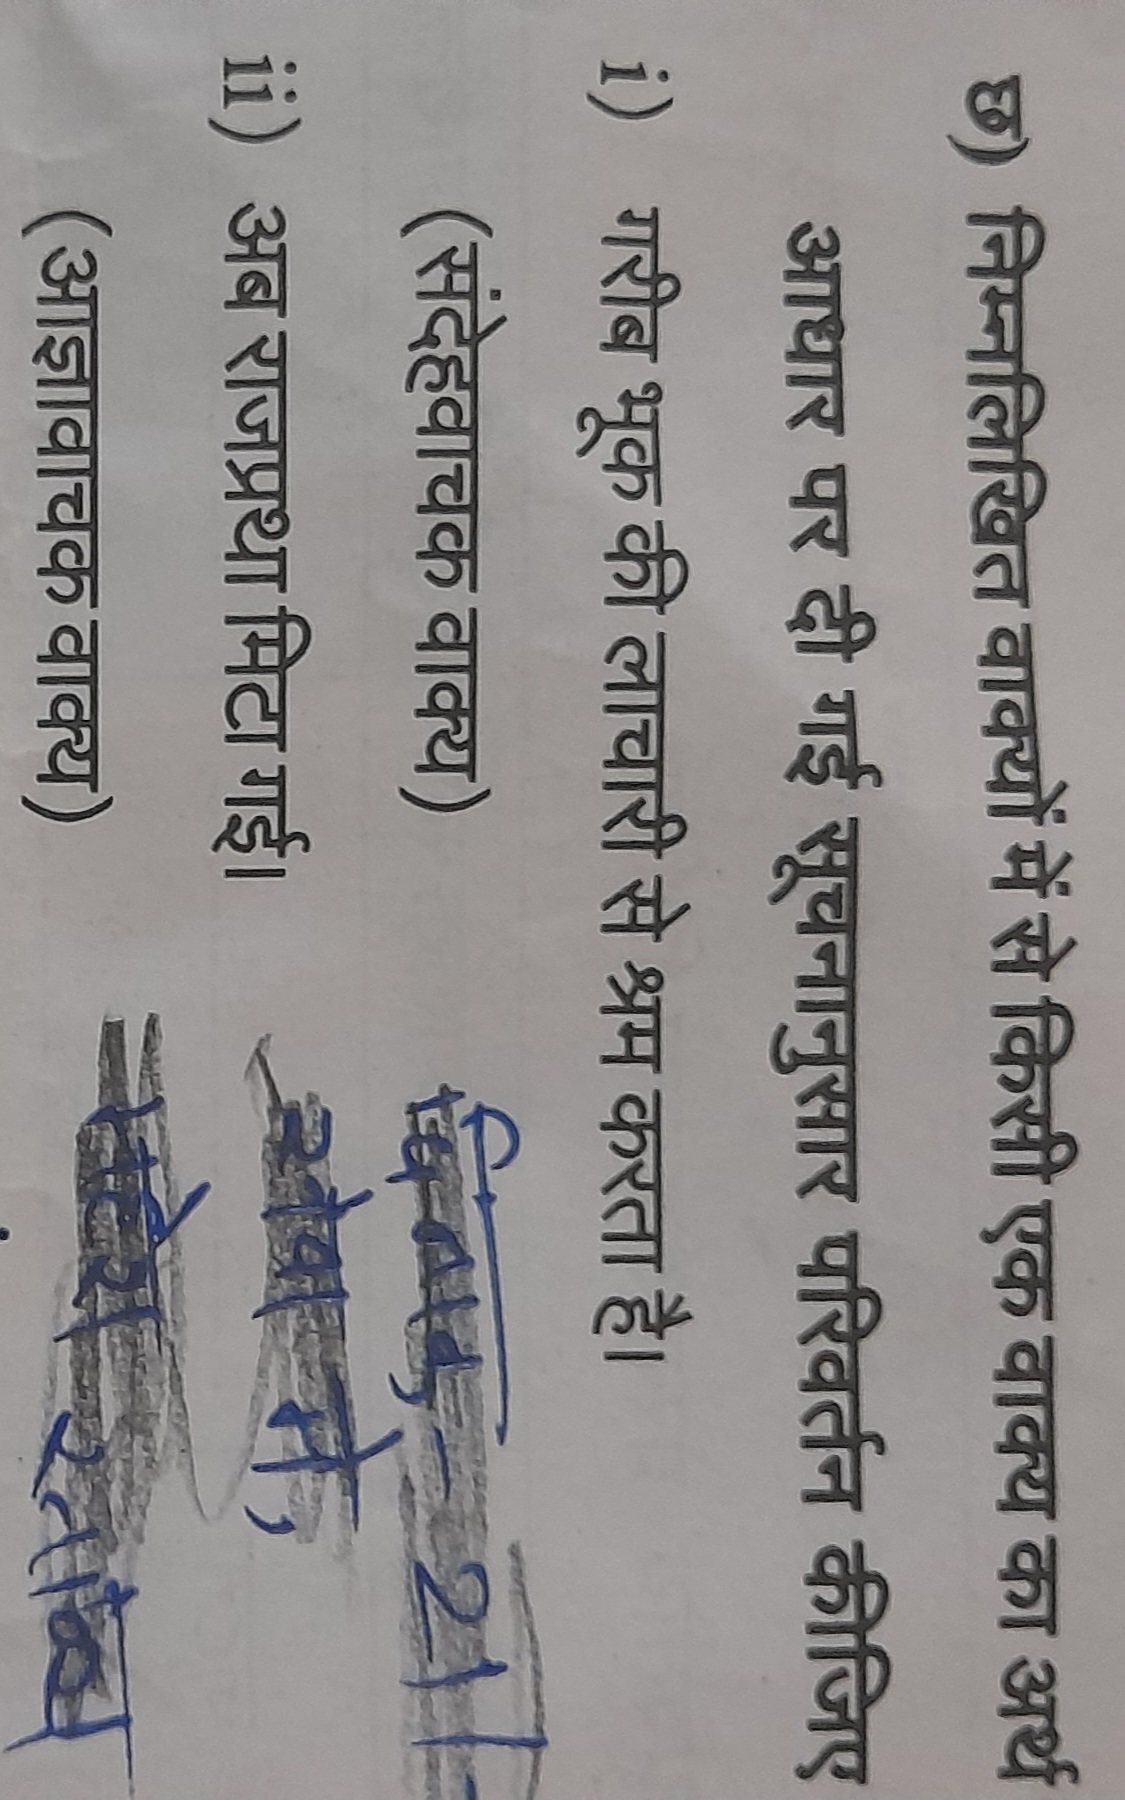 छ) निम्नलिखित वाक्यों में से किसी एक वाक्य का अर्थ
आधार पर दी गई सूचनानुसार परिवर्तन कीजिए
i) गरीब भूक की लाचारी से श्रम करता है।
(संदेहवाचक वाक्य)
ii) अब राजप्रथा मिटा गई।
(आज्ञावाचक वाक्य)